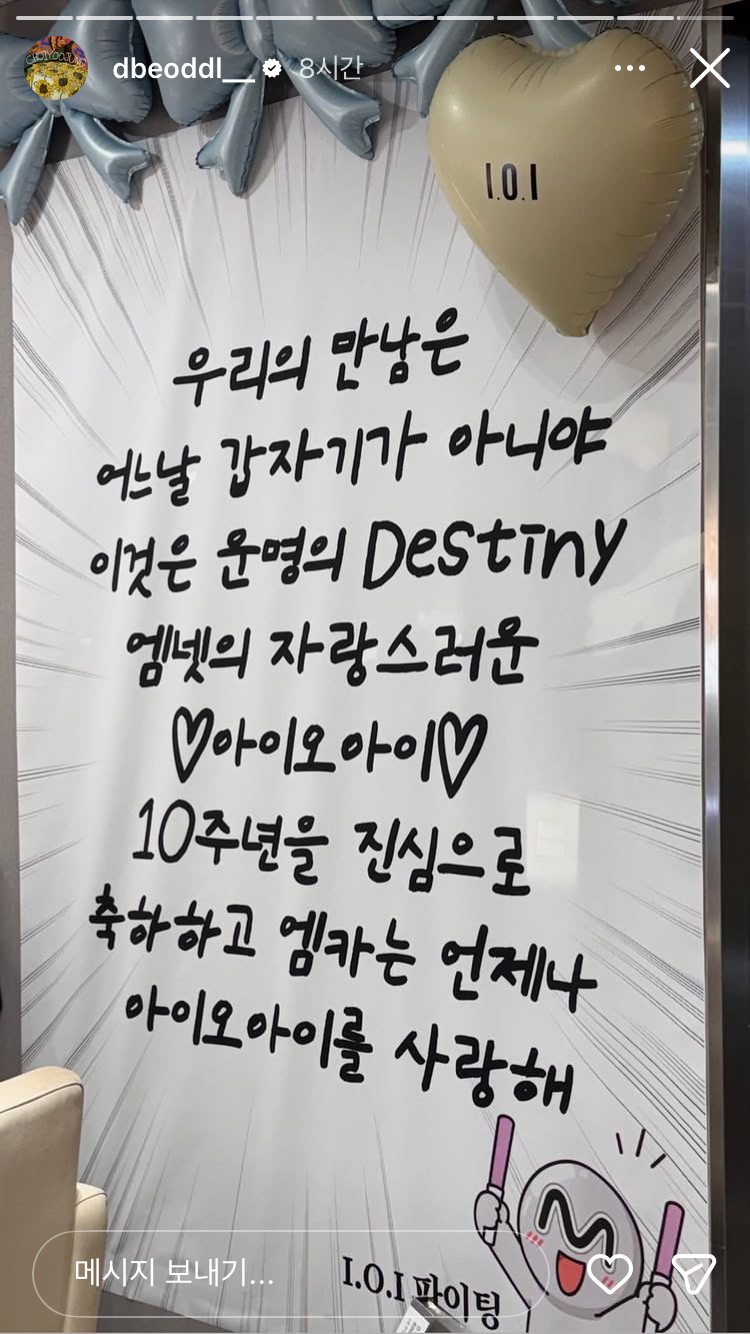 dbeoddl__ 8시간
I.O.I
우리의 만남은
어느날 갑자기가 아니야
이것은 운명의 Destiny
엠넷의 자랑스러운
♡아이오아이♡
10주년을 진심으로
축하하고 엠카는 언제나
아이오아이를 사랑해
I.O.I 파이팅
메시지 보내기...